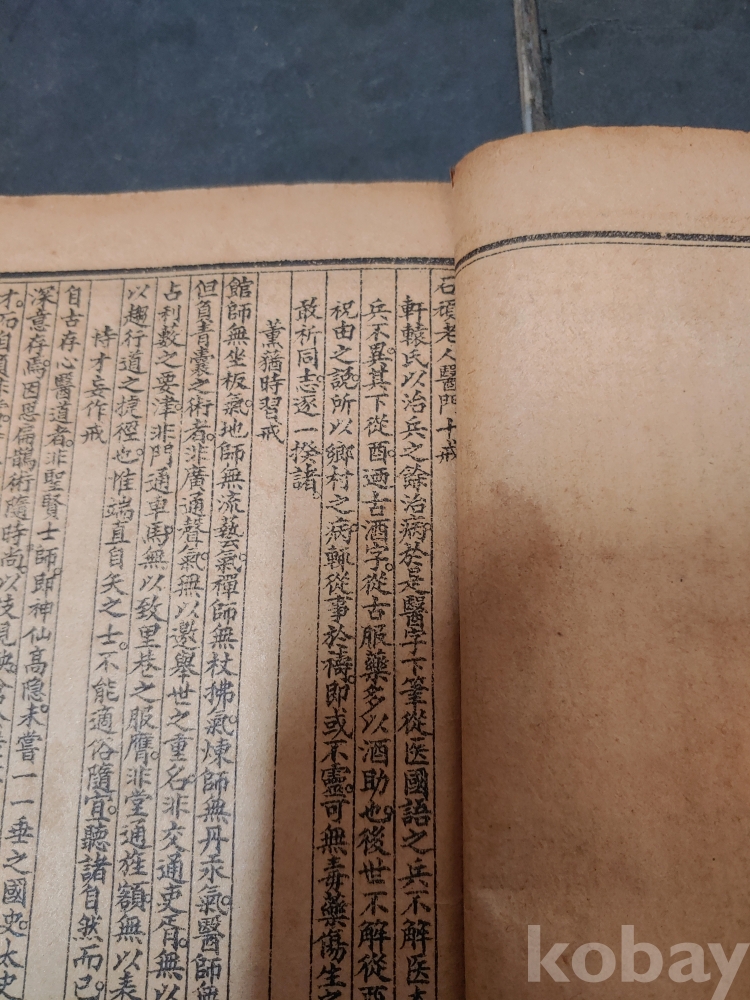 石頑老人醫門十戒
軒轅氏以治兵之餘治病。於是醫字下筆從医。國語之兵不解医
兵不異。其下從酉。迺古酒字。從古服藥多以酒助也。後世不解從酉
祝由之說。所以鄉村之病。輒從事於禱。即或不靈。可無毒藥傷生之
敢祈同志。逐一揆諸。
薰蕕時習戒
館師無坐板氣。地師無流藝氣。禪師無杖拂氣。煉師無丹汞氣。醫師無
但負青囊之術者。非廣通聲氣。無以邀舉世之重名。非交通吏胥。無以
占利藪之要津。非門通車馬。無以致里巷之服膺。非堂通旌額。無以表
以趨行道之捷徑也。惟端直自矢之士。不能適俗隨宜。聽諸自然而已。
恃才妄作戒
自古存心醫道者。非聖賢士師。即神仙高隱。未嘗一一垂之國史。太史
深意存焉。因惡扁鵲術隨時尚。以技見殃
kobay